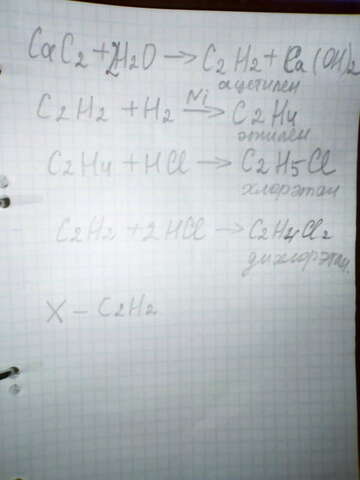 CaC2 + 2H2O → C2H2 + Ca(OH)2
ацетилен
C2H2 + H2 Ni→ C2H4
этилен
C2H4 + HCl → C2H5Cl
хлорэтан
C2H2 + 2HCl → C2H4Cl2
дихлорэтан.
X – C2H2